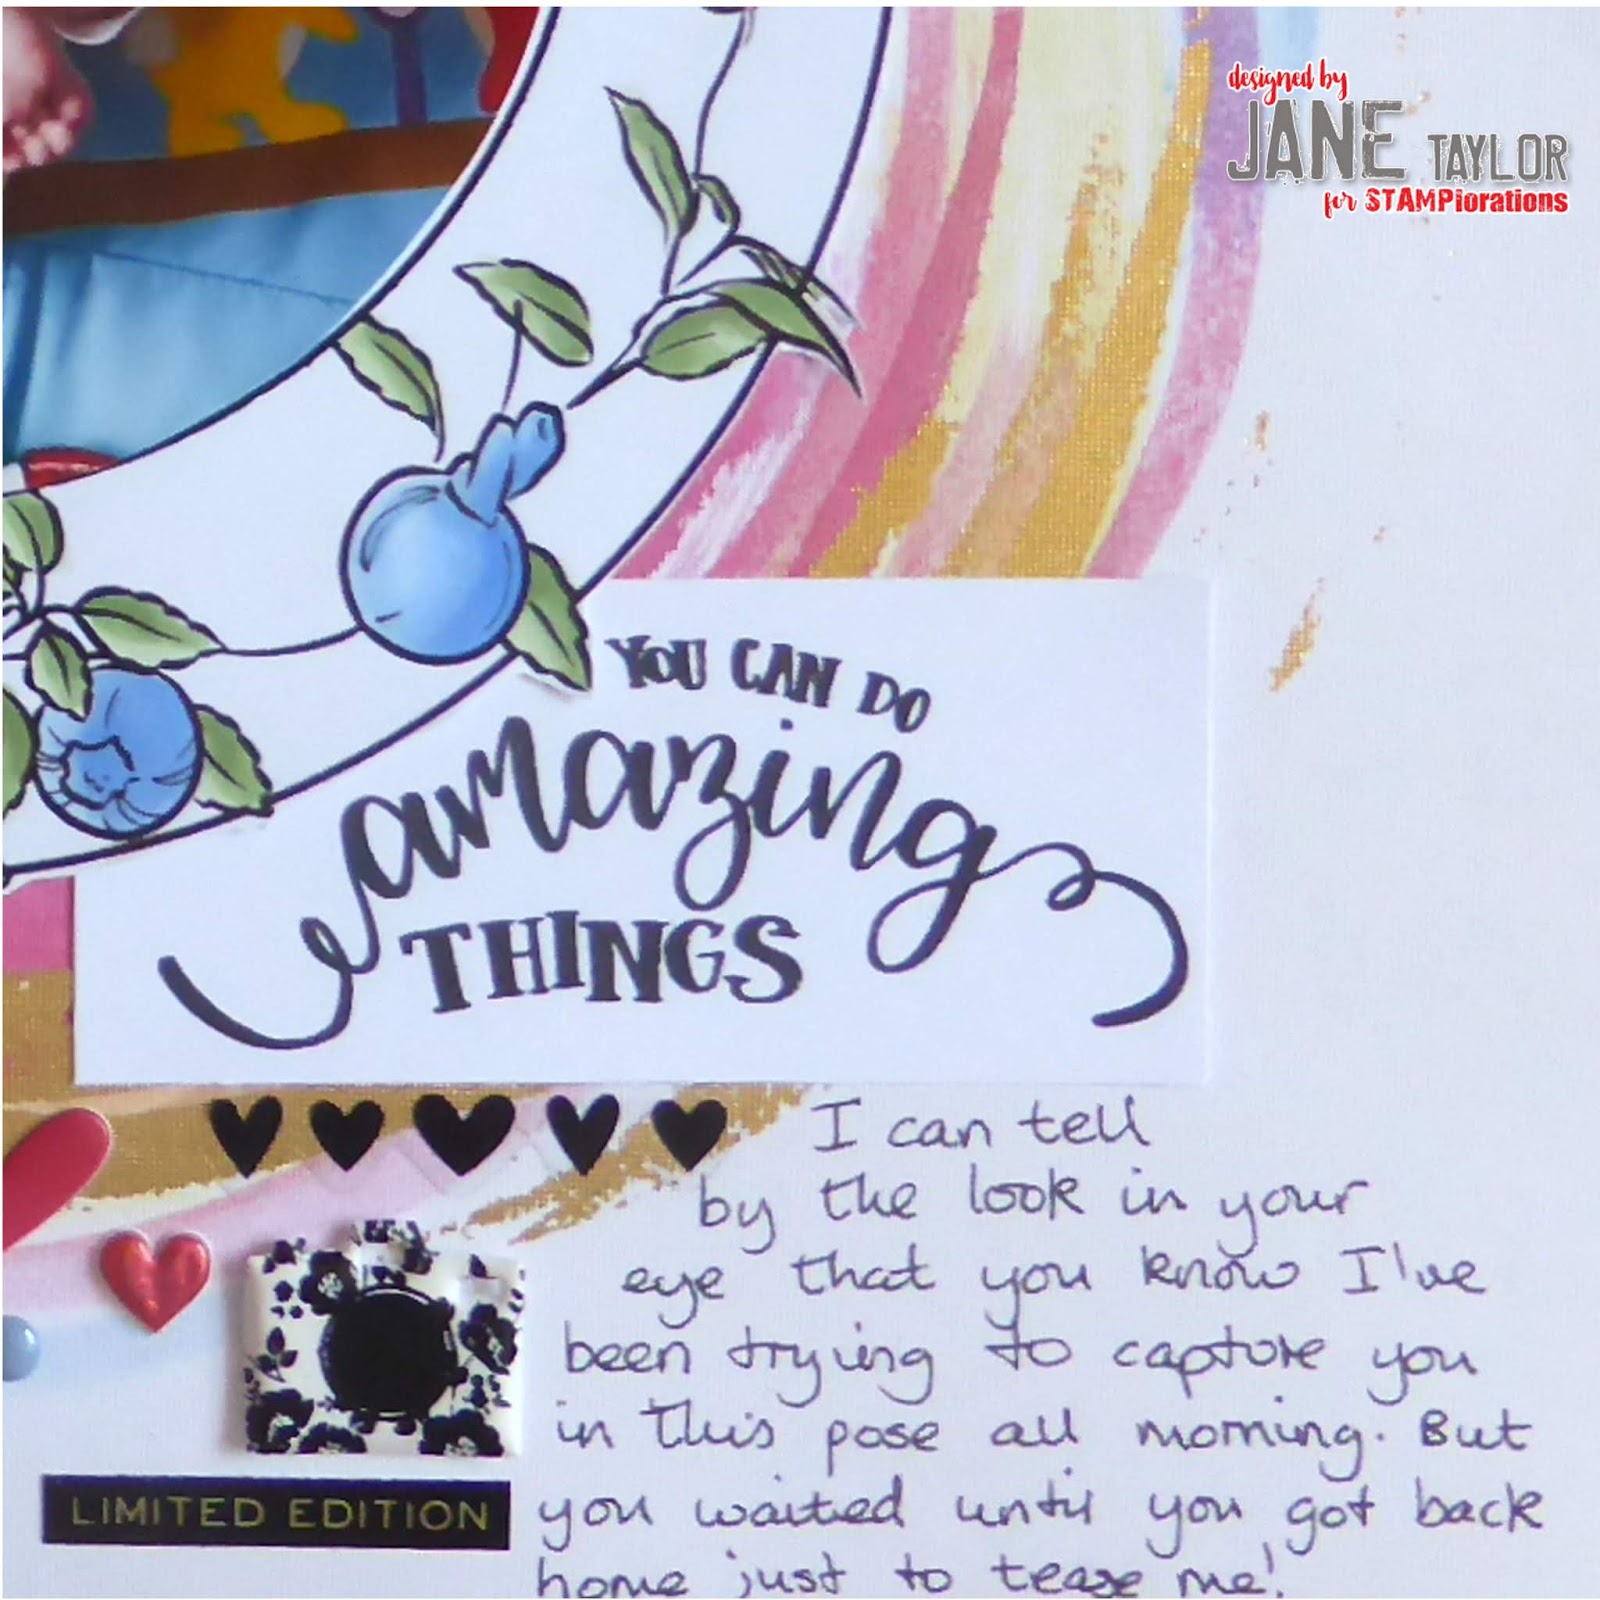 designed by
JANE TAYLOR
for STAMPlorations
YOU CAN DO
amazing
THINGS
I can tell
by the look in your
eye that you know I've
been trying to capture you
in this pose all morning. But
you waited until you got back
home just to tease me!
LIMITED EDITION